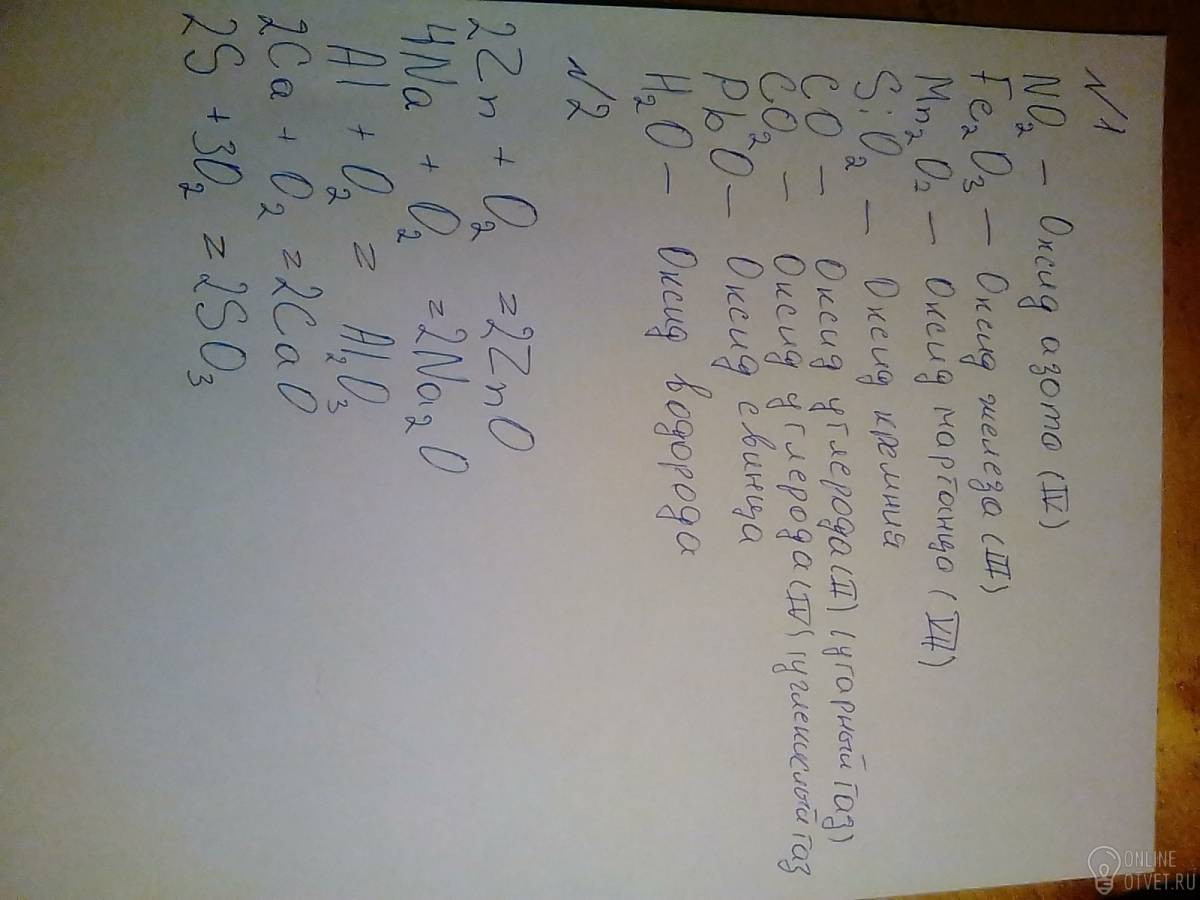 №1
NO₂ – Оксид азота (IV)
Fe₂O₃ – Оксид железа (III)
Mn₂O₇ – Оксид марганца (VII)
SiO₂ – Оксид кремния
CO – Оксид углерода (II) (угарный газ)
CO₂ – Оксид углерода (IV) (углекислый газ
PbO – Оксид свинца
H₂O – Оксид водорода
№2
2Zn + O₂ = 2ZnO
4Na + O₂ = 2Na₂O
Al + O₂ = Al₂O₃
2Ca + O₂ = 2CaO
2S + 3O₂ = 2SO₃
ONLINE
OTVET.RU